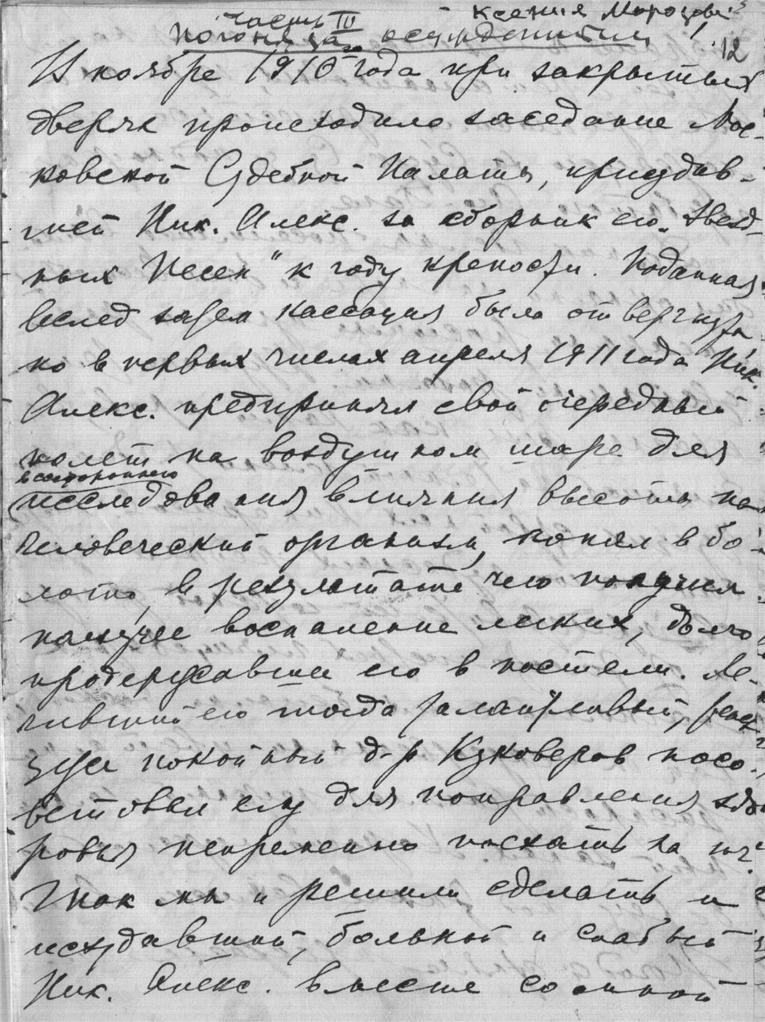 Ксения Морозова
Часть III
Погоня за осужденным
12
В ноябре 1910 года при закрытых
дверях происходило заседание Мос-
ковской Судебной Палаты, присудив-
шей Ник. Алекс. за сборник его „Звезд-
ных Песен" к году крепости. Поданная
вслед затем кассация была отвергнута,
но в первых числах апреля 1911 года Ник.
Алекс. предпринял свой очередной
полет на воздушном шаре для
всестороннего
исследования влияния высоты на
человеческий организм, попал в бо-
лото, в результате чего получил
ползучее воспаление легких, долго
продержавшее его в постели. Ле-
чивший его тогда талантливый,
покойный д-р Куковеров посо-
ветовал ему для поправления здо-
ровья непременно поехать на юг.
Так мы и решили сделать, и
исхудавший, больной и слабый
Ник. Алекс. вместе со мной